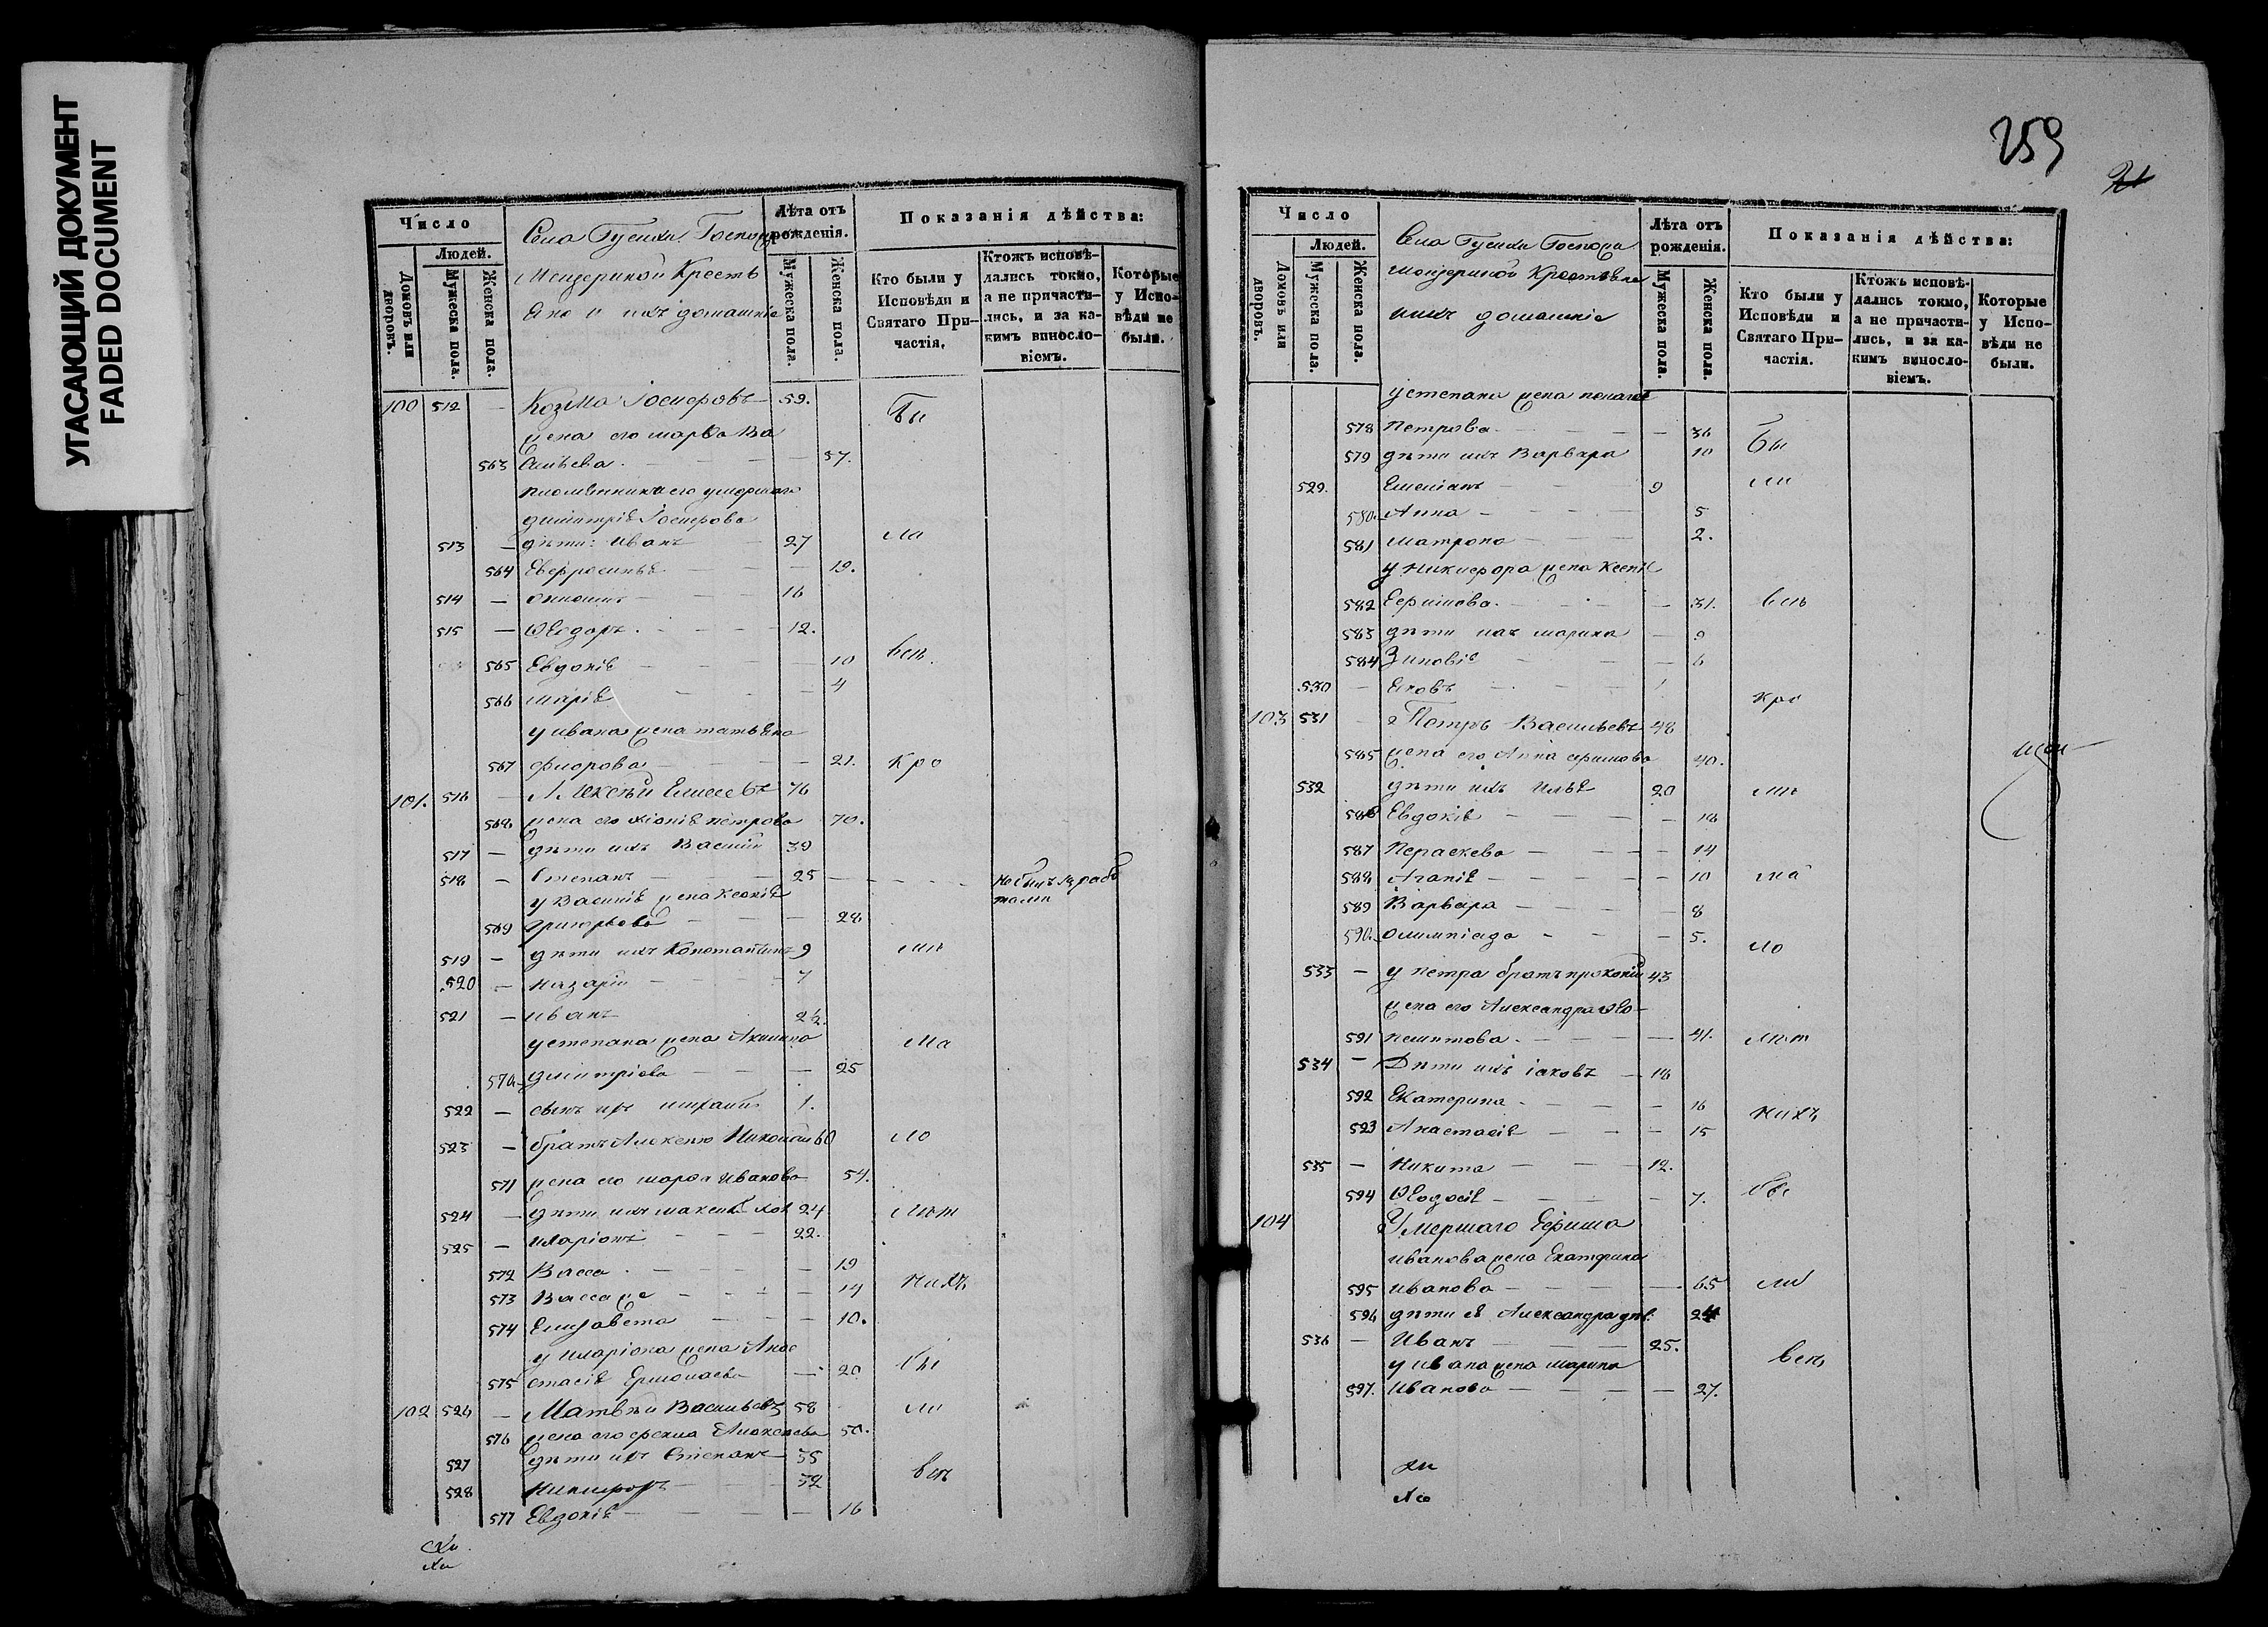 УГАСАЮЩИЙ ДОКУМЕНТ
FADED DOCUMENT
Число
Людей.
Домовъ или дворовъ.
Мужеска пола.
Женска пола.
Села Гусихи Госпожи
Крестья
и ихъ домашнiе
Лѣта отъ рожденiя.
Мужеска пола.
Женска пола.
Показанiя дѣйства:
Кто были у Исповѣди и Святаго Причастiя.
Ктожъ исповѣдались токмо, а не причастились, и за какимъ винословiемъ.
Которые у Исповѣди не были.
100 512 — Козма Iосифовъ 59. Бы
жена его марѳа Ва
563 сильева 57.
умершаго
димитрiя Iосифова
513 — дѣти: Иванъ — 27 ла
564 Евфросинья — 19.
514 — 16
515 — Ѳеодоръ — 12.
565 Евдокiя — 10 всѣ
566 марiя — 4
у ивана жена татьяна
567 — 21. Кро
101. 516 — Алексѣй Елисеевъ 76
568 жена его петрова 70.
517 — дѣти ихъ Василiй 39
518 — Степанъ — 25
у Василiя жена Ксенiя
569 григорьева — 28
519 — дѣти ихъ Константинъ 9 мѣ
520 — назарiй — 7
521 — иванъ
у степана жена Акилина ма
570 димитрiева — 25
522 — сынъ ихъ михаилъ 1.
523 — братъ Алексѣю Николай 60 ло
571 жена его марѳа Иванова 54.
524 — дѣти ихъ 24 лѣт
525 — иларiонъ — 22.
572 Васса — 19
573 Васса же — 14 нихъ
574 Елизавета — 10.
у иларiона жена Анас
575 стасiя Ермолаева — 20 бы
102 526 — Матвѣй Васильевъ 58 ли
576 жена его Алексѣева 50.
527 дѣти ихъ Степанъ 35
528 никифоръ — 32 всѣ
577 Евдокiя — 16
259
21
Число
Людей.
Домовъ или дворовъ.
Мужеска пола.
Женска пола.
Села Гусихи Госпожи
Крестьяне
и ихъ домашнiе
Лѣта отъ рожденiя.
Мужеска пола.
Женска пола.
Показанiя дѣйства:
Кто были у Исповѣди и Святаго Причастiя.
Ктожъ исповѣдались токмо, а не причастились, и за какимъ винословiемъ.
Которые у Исповѣди не были.
у степана жена пелагея
578 Петрова — 36
579 дѣти ихъ Варвара 10 Бы
529. Емелiанъ — 9 ли
580. Анна — 5
581 матрона — 2.
у никифора жена Ксенiя
582 Ефимова — 31. всѣ
583 дѣти ихъ марина — 9
584 Зиновiя — 6
530 — Яковъ — 1 кро
103 531 — Петръ Васильевъ 48
585 жена его Анна ефимова 40.
532 дѣти ихъ Илья 20 мѣ
586 Евдокiя — 18
587 Параскева — 14
588 Агапiя — 10 ма
589 Варвара — 8
590. олимпiада — 5. ло
533 — у петра братъ прокопiй 43
жена его Александра Ѳео
591 пемптова — 41. лѣт
534 — Дѣти ихъ iаковъ — 18
592 Екатерина — 16 нихъ
593 Анастасiя — 15
535 — Никита — 12.
594 Ѳеодосiя — 7.
104 Умершаго Ефима
иванова жена Екатерина
595 иванова — 65 ли
596 дѣти ея Александра дѣв. 24
536 — Иванъ — 25.
у ивана жена марина всѣ
597. Иванова — 27.